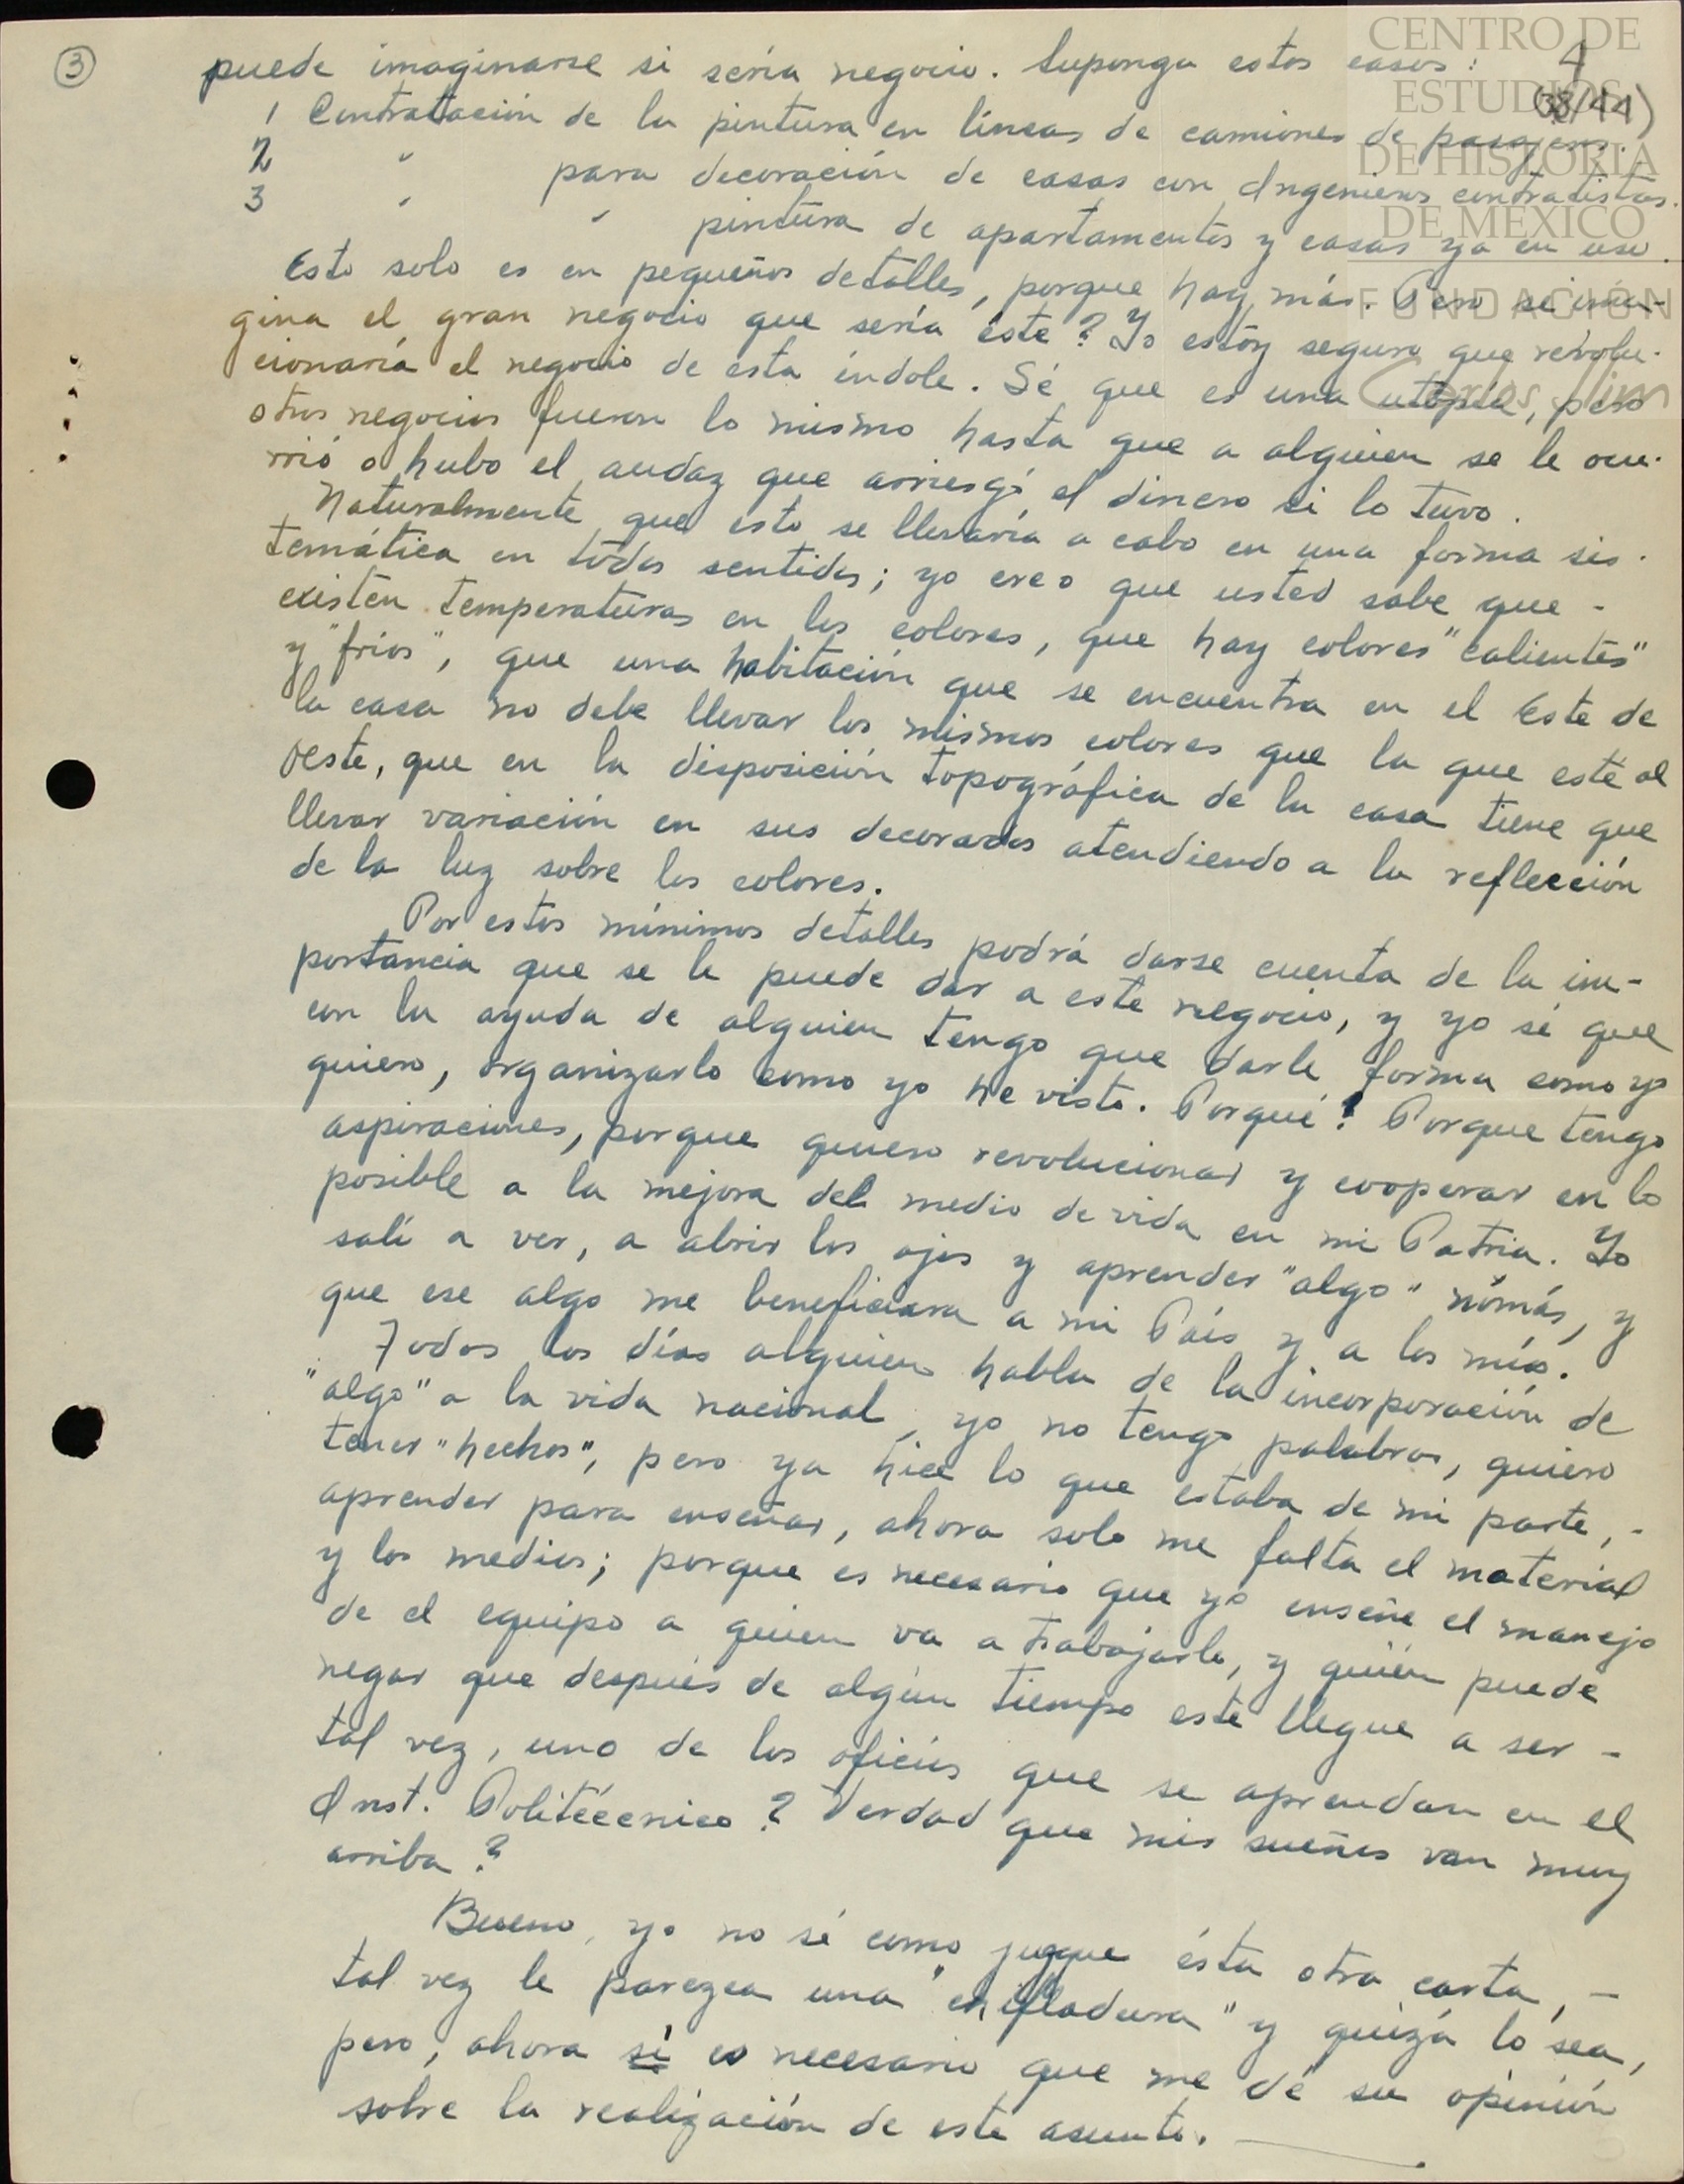 3
4
(38/44)
puede imaginarse si sería negocio. Suponga estos casos:
1 Contratación de la pintura en líneas de camiones de pasajeros.
2 " para decoración de casas con Ingenieros contratistas.
3 " " pintura de apartamentos y casas ya en uso.
Esto solo es en pequeños detalles, porque hay más. Pero se ima-
gina el gran negocio que sería éste? Yo estoy seguro que revolu-
cionaría el negocio de esta índole. Sé que es una utopía, pero
otros negocios fueron lo mismo hasta que a alguien se le ocu-
rrió o hubo el audaz que arriesgó el dinero si lo tuvo.
Naturalmente que esto se llevaría a cabo en una forma sis-
temática en todos sentidos; yo creo que usted sabe que -
existen temperaturas en los colores, que hay colores "calientes"
y "fríos", que una habitación que se encuentra en el Este de
la casa no debe llevar los mismos colores que la que esté al
Oeste, que en la disposición topográfica de la casa tiene que
llevar variación en sus decorados atendiendo a la reflección
de la luz sobre los colores.
Por estos mínimos detalles podrá darse cuenta de la im-
portancia que se le puede dar a este negocio, y yo sé que
con la ayuda de alguien tengo que darle forma como yo
quiero, organizarlo como yo he visto. Porqué? Porque tengo
aspiraciones, porque quiero revolucionar y cooperar en lo
posible a la mejora del medio de vida en mi Patria. Yo
salí a ver, a abrir los ojos y aprender "algo" nomás, y
que ese algo me beneficiara a mi País y a los míos.
Todos los días alguien habla de la incorporación de
"algo" a la vida nacional, yo no tengo palabras, quiero
tener "hechos", pero ya hice lo que estaba de mi parte, -
aprender para enseñar, ahora solo me falta el material
y los medios; porque es necesario que yo enseñe el manejo
de el equipo a quien va a trabajarlo, y quién puede
negar que después de algún tiempo este llegue a ser -
tal vez, uno de los oficios que se aprendan en el
Inst. Politécenico? Verdad que mis sueños van muy
arriba?
Bueno, yo no sé como juzgue ésta otra carta, -
tal vez le parezca una "chifladura" y quizá lo sea,
pero, ahora sí es necesario que me dé su opinión
sobre la realización de este asunto.
CENTRO DE
ESTUDIOS
DE HISTORIA
DE MÉXICO
FUNDACIÓN
Carlos Slim